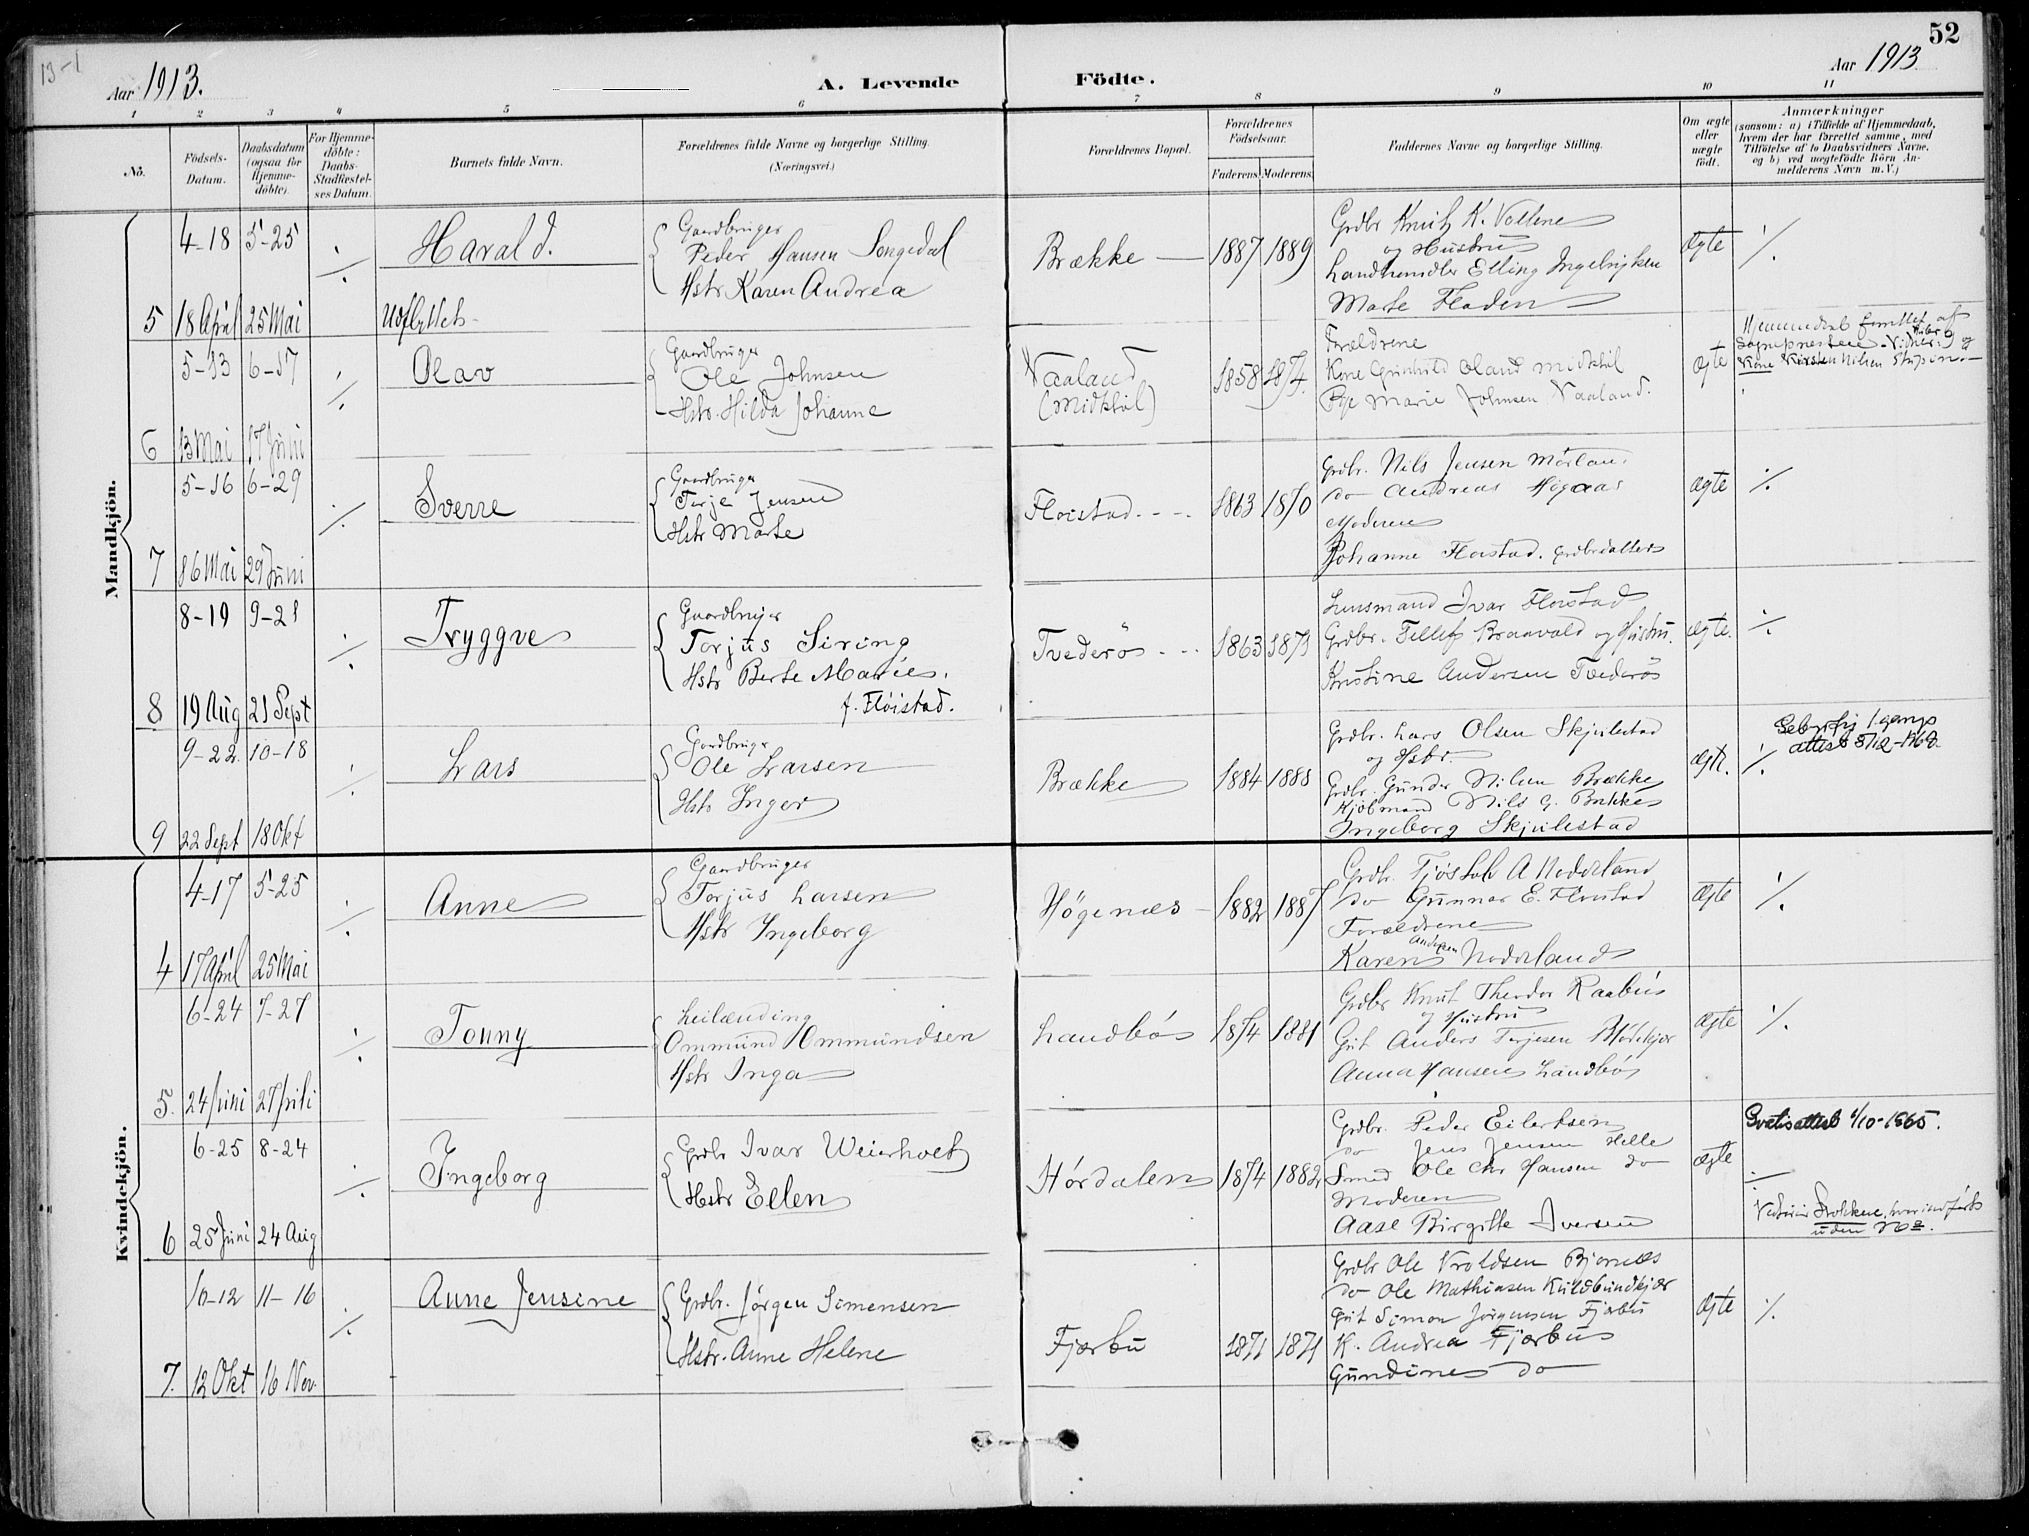 52
13-1
Aar 1913.
A. Levende
Födte.
Aar 1913
1 2 3 4 5 6 7 8 9 10 11
No.
Födsels-
Datum.
Daabsdatum
(ogsaa for
Hjemme-
döbte).
For Hjemme-
döbte:
Daabs-
Stadfæstel-
ses Datum.
Barnets fulde Navn.
Forældrenes fulde Navne og borgerlige Stilling.
(Næringsvei.)
Forældrenes Bopæl.
Forældrenes
Födselsaar.
Faderens. Moderens.
Faddernes Navne og borgerlige Stilling.
Om ægte
eller
uægte
födt.
Anmærkninger
(saasom: a) i Tilfælde af Hjemmedaab,
hvem der har forrettet samme, med
Tilföielse af to Daabsvidners Navne,
og b) ved uægtefödte Börn An-
melderens Navn m. V.)
Mandkjön.
4-18 5-25
5 18 April 25 Mai
./.
Harald.
Udflyttet
Gaardbruger
Peder Hansen Songedal
Hstr Karen Andrea
Brække
1887 1889
Grdbr Knut K. Vollene
og Hustru
Landhandler Elling
Marte Fladen
Ægte
./.
5-13 6-17
6 13 Mai 17 Juni
./.
Olav
Gaardbruger
Ole Johnsen
Hstr. Hilda Johanne
Vaaland
(Midtbøl)
1858 1874.
Forældrene
Kone Gunhild
Pge Marie Johnsen Vaaland.
Ægte
Hjemmedøbt forrettet af
Sognepresten
Kone Kirsten Nilsen
5-16 6-29
7 16 Mai 29 Juni
./.
Sverre
Gaardbruger
Terje Jensen
Hstr Marte
Floistad
1863 1870
Grdbr. Nils Jensen
do Andreas Høgaas
Moderen
Johanne Floistad. grdbrdatter
Ægte
./.
8-19 9-21
8 19 Aug 21 Sept
./.
Tryggve
Gaardbruger
Torjus Siring
Hstr Berte Marie.
f. Fløistad.
Tvederøs
1863 1873
Lensmand Ivar Floistad
Grdbr. Tellef Braavold og Hustru.
Kristine Andersen Tvederøs
Ægte.
./.
9-22 10-18
9 22 Sept 18 Okt
./.
Lars
Gaardbruger
Ole Larsen
Hstr Inger
Brække
1884 1888
Grdbr. Lars Olsen Skjulestad
og Hstr.
Grdbr. Gunder Nilsen Brække
Kjøbmand Nils G. Brække
Ingeborg Skjulestad
Ægte.
./.
1 gangs
attest
Kvindekjön.
4-17 5-25
4 17 April 25 Mai
./.
Anne
Gaardbruger
Torjus Larsen
Hstr Ingeborg
Høgenæs
1882 1887
Grdbr. Tjøstolv A
do Gunnar E. Floistad
Forældrene
Karen Andersen
Ægte
./.
6-24 7-27
5. 24 Juni 27 Juli
./.
Tonny
Leilænding
Ommund Ommundsen
Hstr Inga
Landbøs
1874 1881
Grdbr Knut Theodor Raabu
og Hustru
Gut Anders Terjesen
Anna Hansen Landbøs
Ægte
./.
6-25 8-24
6 25 Juni 24 Aug
./.
Ingeborg
Grdbr Ivar Weierholt
Hstr Ellen
Hørdalen
1874 1882
Grdbr. Peder Eilertsen
do Jens Jensen Helle
Smed Ole Chr Hansen do
Moderen
Aase Birgitte Iversen
Ægte
attest 1/10-1965.
uden No.
10-12 11-16
7. 12 Okt 16 Nov.
./.
Anne Jensine
Grdbr. Jørgen Simensen
Hstr. Anne Helene
Fjærbu
1871 1871
Grdbr Ole Vroldsen Bjørnæs
do Ole Mathiasen
Gut Simon Jørgensen Fjærbu
K. Andrea Fjærbu
Gundine do
Ægte
./.